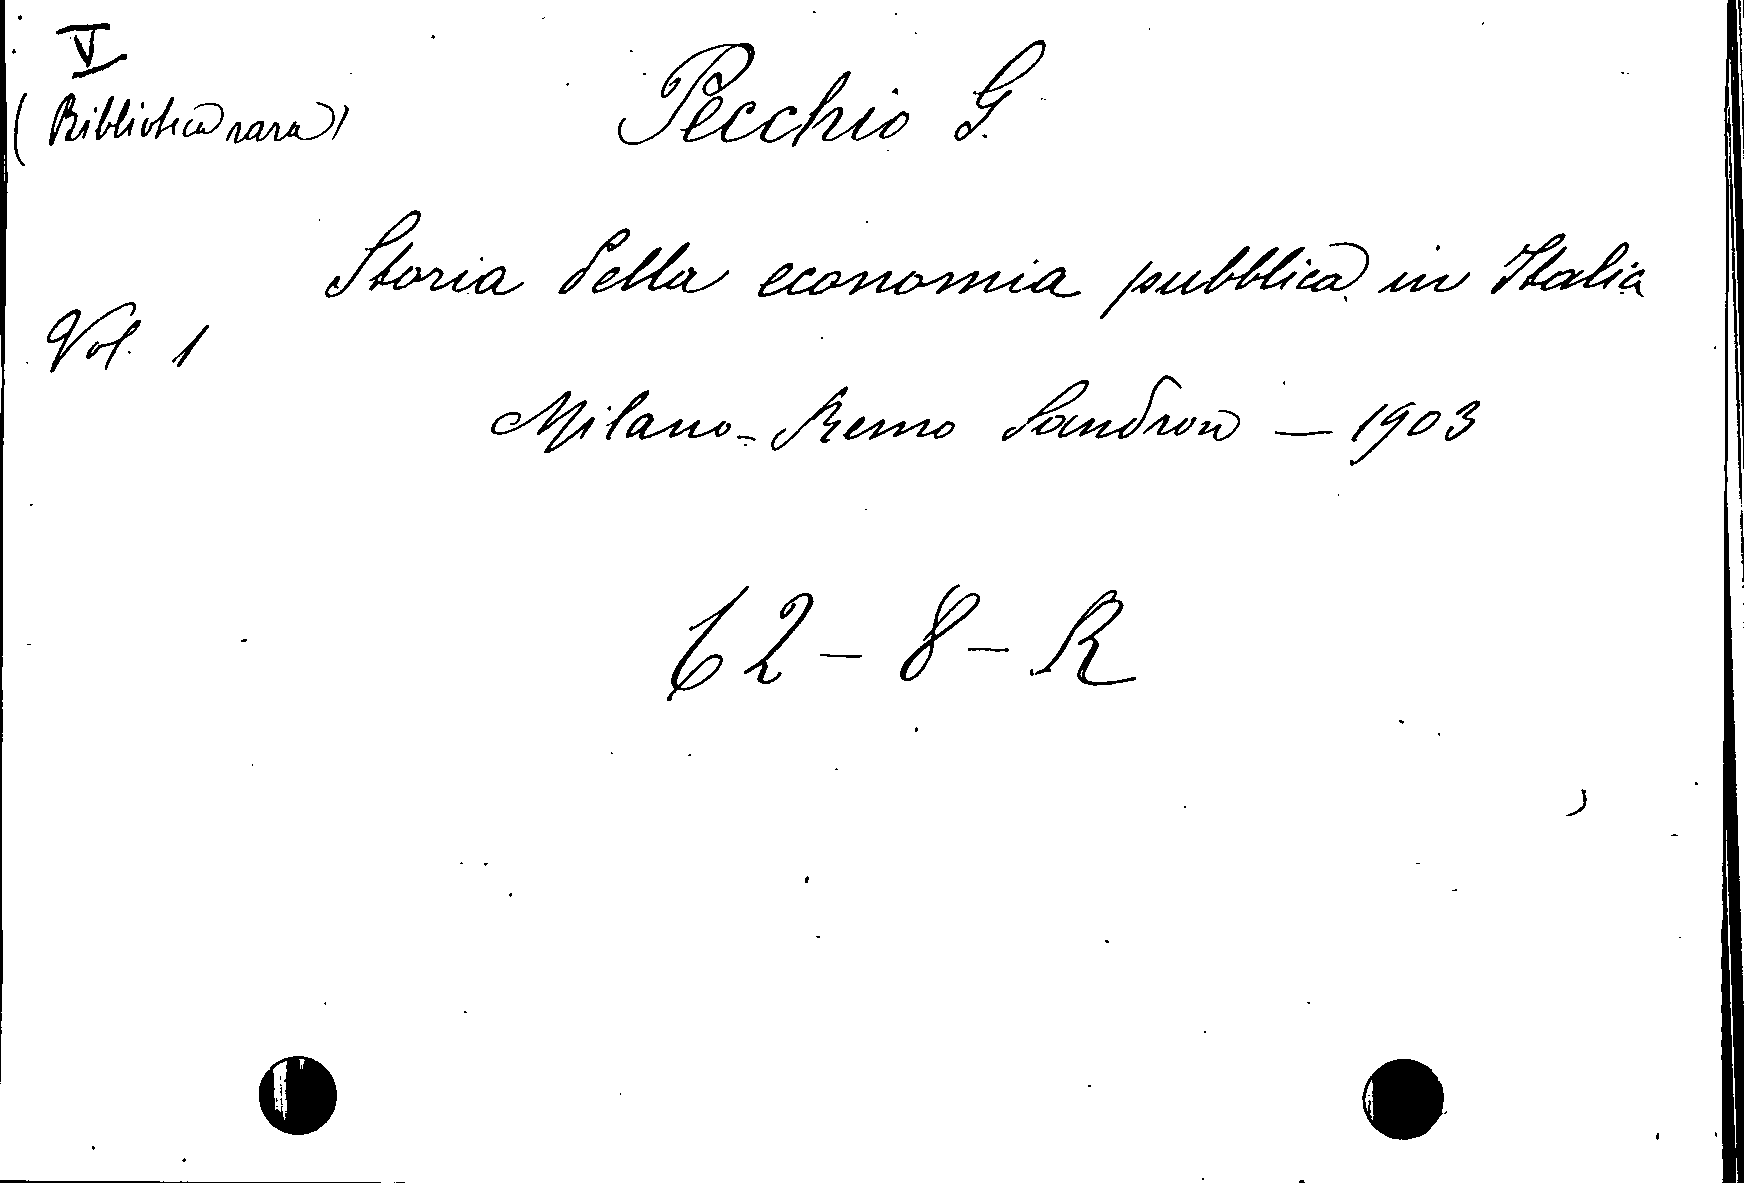 V
(Biblioteca rara)
Pecchio G.
Storia della economia pubblica in Italia
Vol. 1
Milano - Remo Sandron — 1903
62 - 8 - R